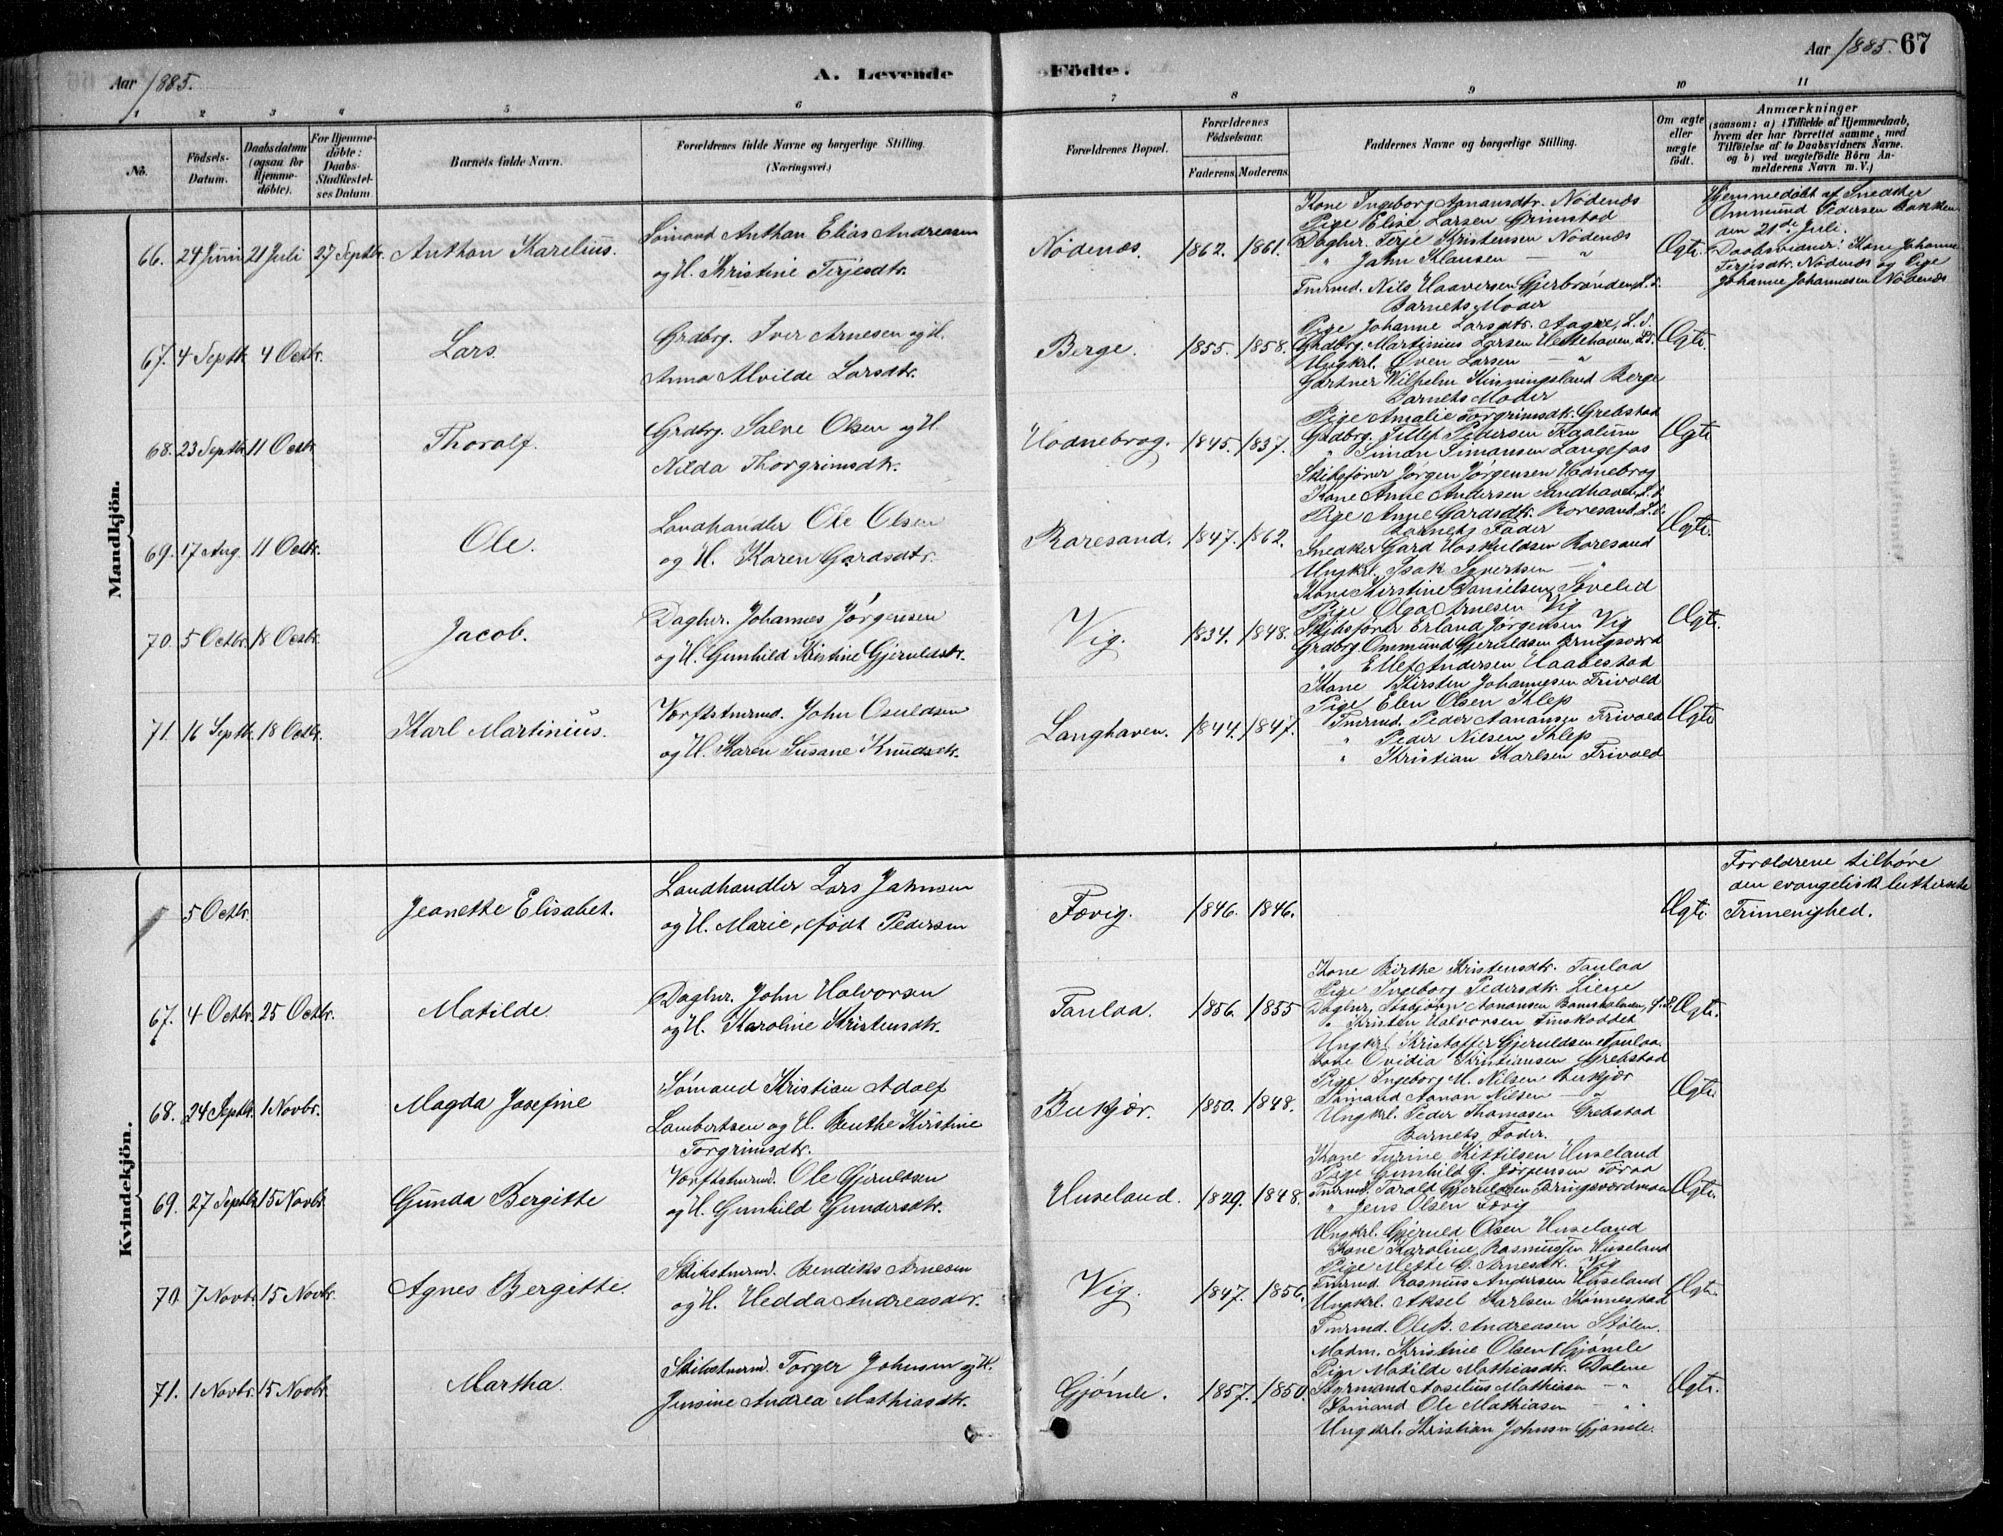 Aar 1885.
A. Levende Födte.
Aar 1885. 67
1 2 3 4 5 6 7 8 9 10 11
No.
Födsels-Datum.
Daabsdatum (ogsaa for Hjemme-döbte).
For Hjemme-döbte: Daabs-Stadfæstel-ses Datum
Barnets fulde Navn.
Forældrenes fulde Navne og borgerlige Stilling. (Næringsvei.)
Forældrenes Bopæl.
Forældrenes Födselsaar.
Faderens. Moderens.
Faddernes Navne og borgerlige Stilling.
Om ægte eller uægte födt.
Anmærkninger (saasom: a) i Tilfælde af Hjemmedaab, hvem der har forrettet samme, med Tilföielse af to Daabsvidners Navne. og b) ved uægtefödte Börn An-melderens Navn m. V.)
Mandkjön.
66. 24 Juni 21 Juli 27 Septbr. Anthon Karelius.
Sömand Anthon Elias Andreasen
og H. Kristine Terjesdtr.
Nödenæs. 1862. 1861.
Kone Ingeborg Aanansdtr. Nödenæs
Pige Elise Larsen Grimstad
Daglnr. Terje Kristensen Nödenæs
" Jahn Klausen — "
Tmrmd. Nils Haaversen Gjerbrönden, L. S.
Ægte.
Hjemmedöbt af Snedker
Ommund Pedersen Bakken
den 21de Juli.
Daabsvidner: Kone Johanne
Terjesdtr. Nödenæs og Pige
Johanne Johannesen Nödenæs
67. 4 Septbr. 4 Octbr. Lars.
Grdbrg. Iver Arnesen og H.
Anna Alvilde Larsdtr.
Berge. 1855. 1858.
Barnets Moder
Pige Johanne Larsdtr. Aagre, L. S.
Grdbrg. Martinius Larsen Hestehaven, L. S.
Ungkrl. Öven Larsen — "
Gartner Wilhelm Kinningsland Berge
Ægte.
68. 23 Septbr. 11 Octbr. Thoralf.
Grdbrg. Salve Olsen og H.
Nilda Thorgrimsdtr.
Hodnebrog. 1845. 1837.
Barnets Moder
Pige Amalie Torgrimsdtr. Grebstad
Grdbrg. Tellef Pedersen Kaalum
" Simon Simonsen Langefos
Skibsförer Jörgen Jörgensen Hodnebrog
Ægte
69. 17 Aug. 11 Octbr. Ole.
Landhandler Ole Olsen
og H. Karen Gardsdtr.
Roresand. 1847. 1862.
Kone Anne Andersen Sandhaven, L. S.
Pige Anne Gardsdtr. Roresand, L. S.
Barnets Fader
Snedker Gard Hoskuldsen Roresand
Ungkrl. Isak Sivertsen — "
Ægte.
70. 5 Octbr. 18 Octbr. Jacob.
Daglnr. Johannes Jörgensen
og H. Gunhild Kristine Gjeruldsdtr.
Vig. 1834. 1848.
Kone Kirstine Danielsen Sevelid
Pige Olga Arnesen Vig
Skibsförer Erland Jörgensen Vig
Grdbrg. Ommund Gjeruldsen Bringsværd
" Ellef Andersen Haabestad
Ægte.
71. 16 Septbr. 18 Octbr. Karl Martinius.
Værftstmrmd. John Osuldsen
og H. Karen Susane Knudsdtr.
Langhaven. 1844. 1847.
Kone Kirsten Johannesen Frivold
Pige Elen Olsen Sklep
Tmrmd. Peder Aanansen Frivold
" Peder Nilsen Sklep
" Kristian Karlsen Frivold
Ægte
Kvindekjön.
5 Octbr. Jeanette Elisabet.
Landhandler Lars Jahnsen
og H. Marie, födt Pedersen
Fævig. 1846. 1846.
Ægte.
Forældrene tilhöre
den evangelisk lutherske
Frimenighed.
67. 4 Octbr. 25 Octbr. Matilde
Daglnr. John Halvorsen
og H. Karoline Kristensdtr.
Taulaa. 1856. 1855
Kone Birthe Kristensdtr. Taulaa
Pige Ingeborg Pedersdtr. Liene
Daglnr. Asbjörn Aanonsen
" Kristen Halvorsen Finskoddet
Ungkrl. Kristoffer Gjeruldsen Taulaa.
Ægte.
68. 24 Septbr. 1 Novbr. Magda Josefine
Sömand Kristian Adolf
Lambertsen og H. Benthe Kirstine
Torgrimsdtr.
Bukjær. 1850. 1848.
Kone Ovidia Kristiansen Grebstad
Pige Ingeborg M. Nilsen Berkjær
Sömand Aanon Nilsen — "
Ungkrl. Peder Thomasen Grebstad
Barnets Fader.
Ægte.
69. 27 Septbr. 15 Novbr. Gunda Bergitte
Værftstmrmd. Ole Gjeruldsen
og H. Gunhild Gundersdtr.
Huseland. 1829. 1848.
Kone Turine Kittilsen Huseland
Pige Gunhild G. Jörgensen Toraa
Tmrmd. Tarald Gjeruldsen Bringsværdmoen
" Jens Olsen Fævig
Ungkrl. Gjeruld Olsen Huseland
Ægte.
70. 7 Novbr. 15 Novbr. Agnes Bergitte.
Skibstmrmd. Bendiks Arnesen
og H. Hedda Andreasdtr.
Vig. 1847. 1856.
Kone Karoline Rasmussen Huseland
Pige Mette C. Arnesdtr. Vig
Tmrmd. Rasmus Andersen Huseland
Ungkrl. Aksel Karlsen Könnestad
Tmrmd. Ole B. Andreasen Stölen.
Ægte.
71. 1 Novbr. 15 Novbr. Martha.
Skibstmrmd. Torger Johnsen og H.
Jensine Andrea Mathiasdtr.
Gjömle. 1857. 1850.
Madm. Kristine Olsen Gjömle
Pige Matilde Mathiasdtr. Dalene
Styrmand Aaselius Mathiasen — "
Sömand Ole Mathiasen — "
Ungkrl. Kristian Johnsen Gjömle.
Ægte.